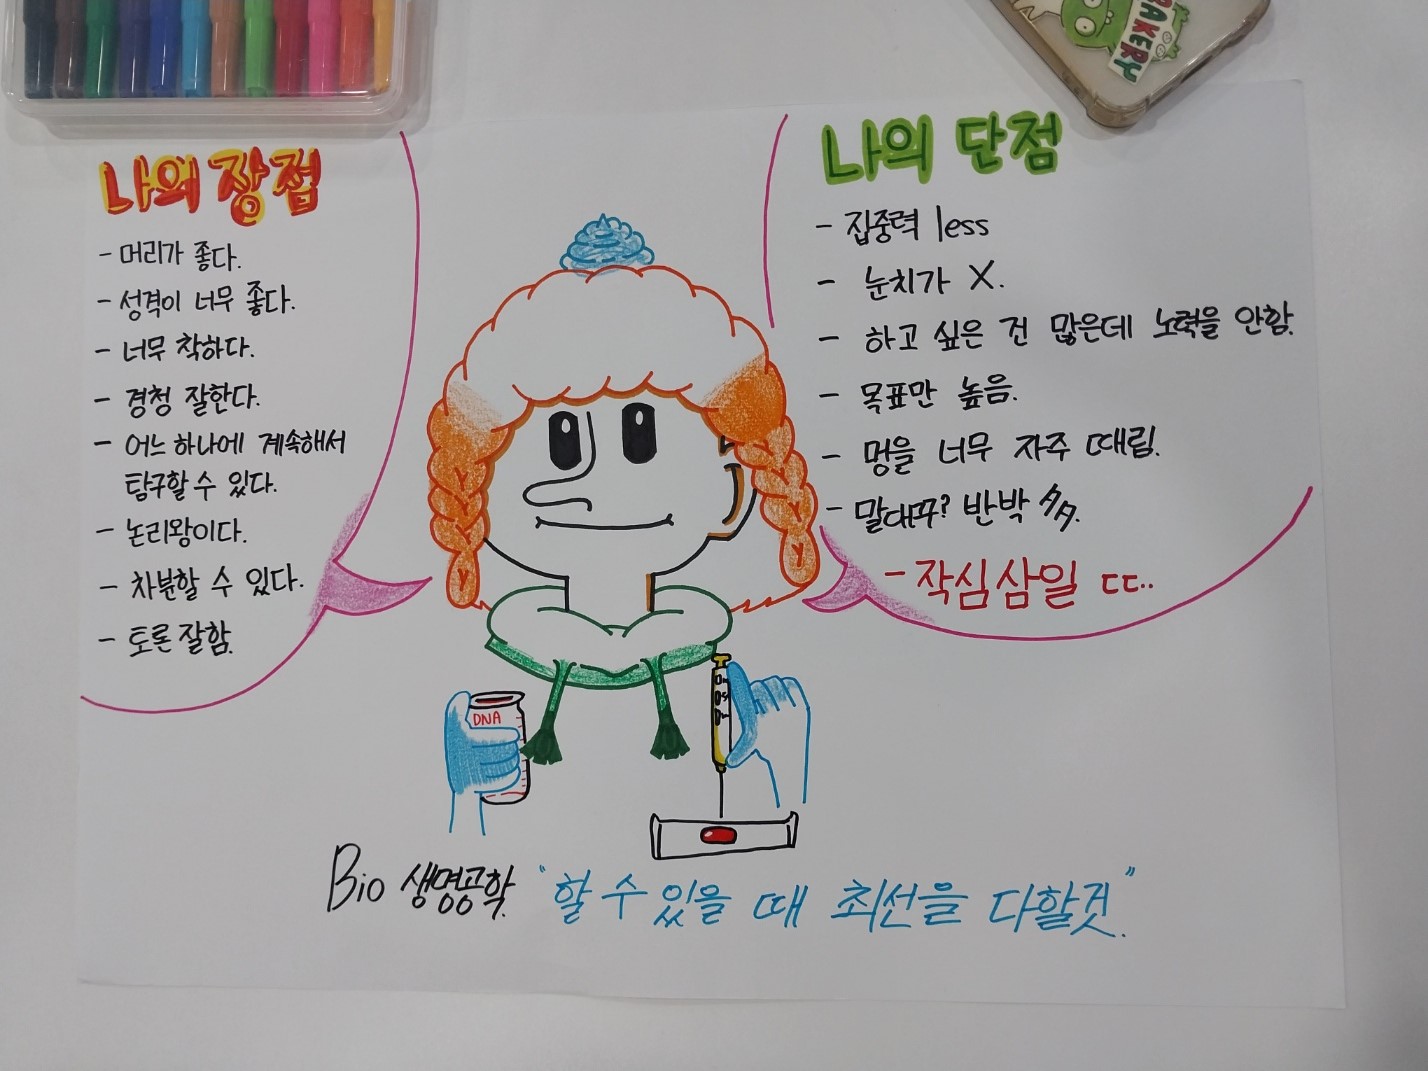 나의 장점
- 머리가 좋다.
- 성격이 너무 좋다.
- 너무 착하다.
- 경청 잘한다.
- 어느 하나에 계속해서
탐구할 수 있다.
- 논리왕이다.
- 차분할 수 있다.
- 토론 잘함.
나의 단점
- 집중력 less
- 눈치가 X.
- 하고 싶은 건 많은데 노력을 안함.
- 목표만 높음.
- 멍을 너무 자주 때림.
- 말대꾸? 반박 多.
- 작심삼일 ㄷㄷ..
DNA
Bio 생명공학. "할 수 있을 때 최선을 다할것."
BAKERY